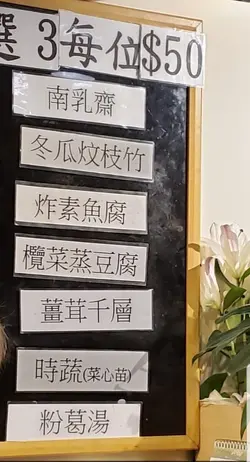 選 3 每位$50
南乳齋
冬瓜炆枝竹
炸素魚腐
欖菜蒸豆腐
薑茸千層
時蔬(菜心苗)
粉葛湯